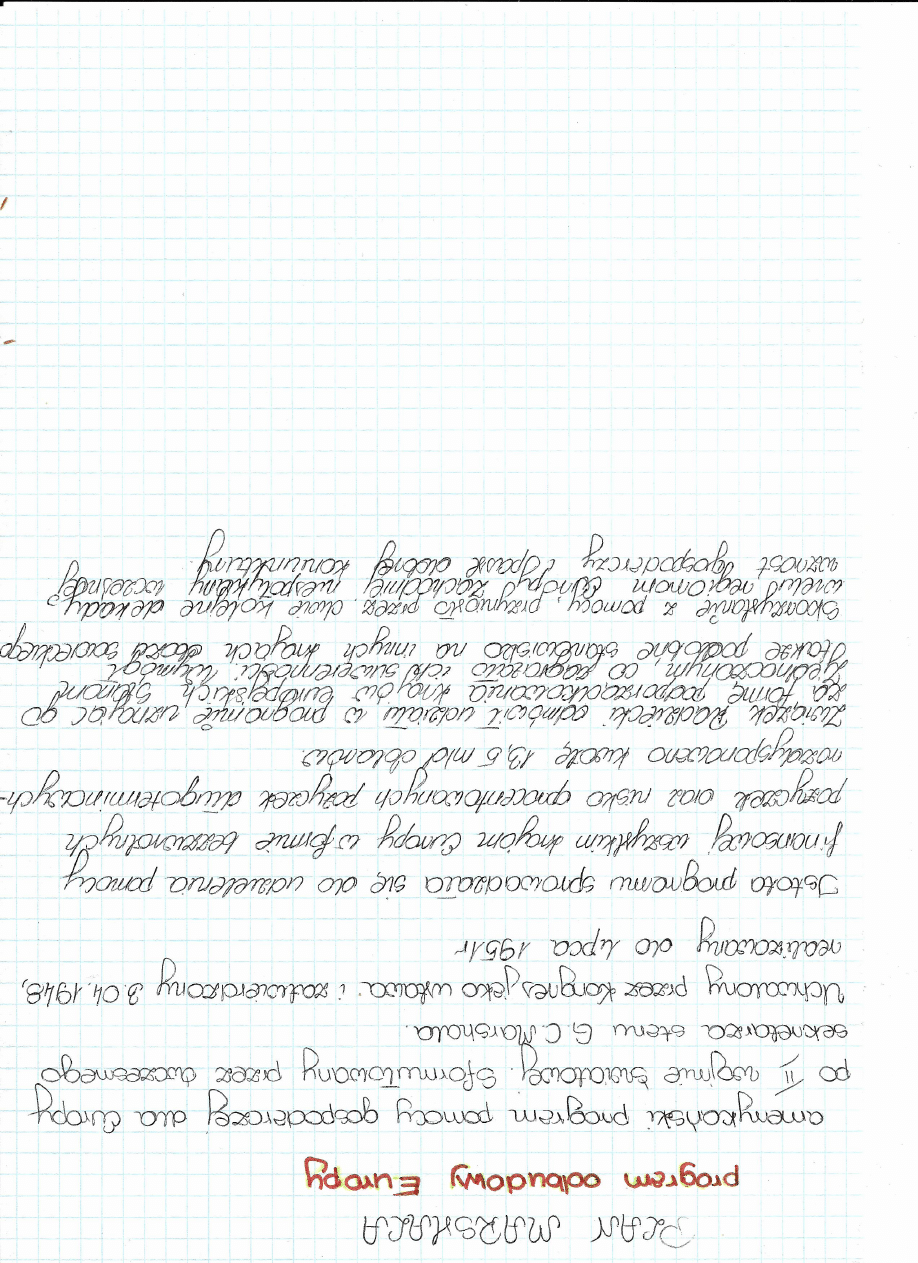 PLAN MARSHALA
program odbudowy Europy
amerykański program pomocy gospodarczej dla Europy
po II wojnie światowej. Sformułowany przez ówczesnego
sekretarza stanu G.C. Marshala.
Uchwalony przez Kongres, jako ustawa i zatwierdzony 3.04.1948,
realizowany do lipca 1951r
Istota programu sprowadzała się do udzielenia pomocy
finansowej wszystkim krajom Europy w formie bezzwrotnych
pożyczek oraz nisko oprocentowanych pożyczek długoterminowych-
rozdysponowano kwotę 13,5 mld dolarów.
Związek Radziecki odmówił udziału w programie uznając go
za formę podporządkowania krajów europejskich Stanom
Zjednoczonym co zagrażało ich suwerenności. Wymógł
także podobne stanowisko na innych krajach bloku sowieckiego
Skorzystanie z pomocy, przyniosło przez dwie kolejne dekady
wielu regionom Europy Zachodniej niespotykany wcześniej
wzrost gospodarczy i opadł dobrej koniunktury.